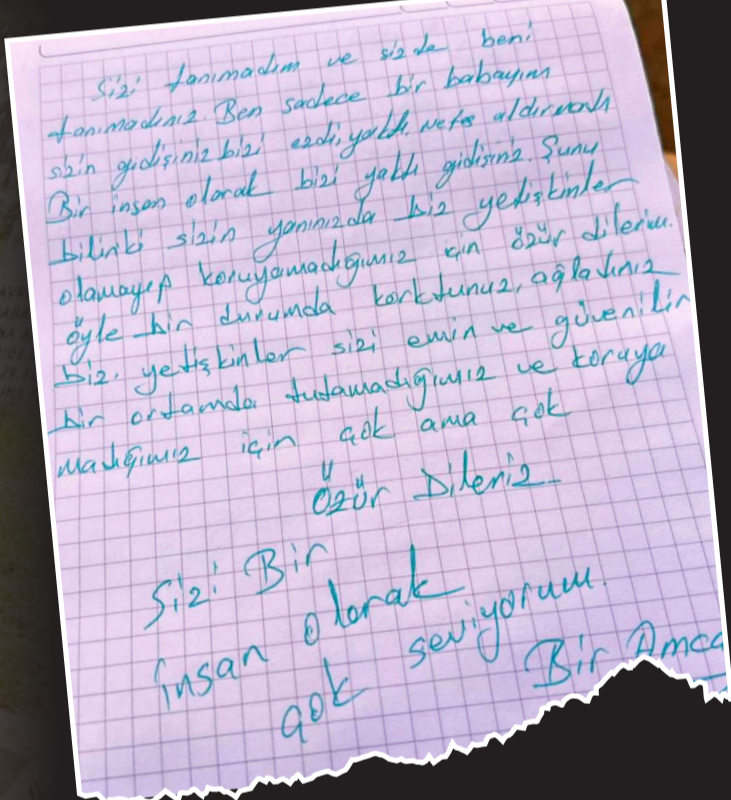 Sizi tanımadım ve sizde beni
tanımadınız. Ben sadece bir babayım
sizin gidişiniz bizi ezdi, yaktı. Nefes aldırmadı
Bir insan olarak bizi yaktı gidişiniz. Şunu
bilinki sizin yanınızda biz yetişkinler
olamayıp koruyamadığımız için özür dilerim.
öyle bir durumda korktunuz, ağladınız
biz, yetişkinler sizi emin ve güvenilir
bir ortamda tutamadığımız ve koruya
madığımız için çok ama çok
Özür Dileriz
Sizi Bir
insan olarak
çok seviyorum.
Bir Amca